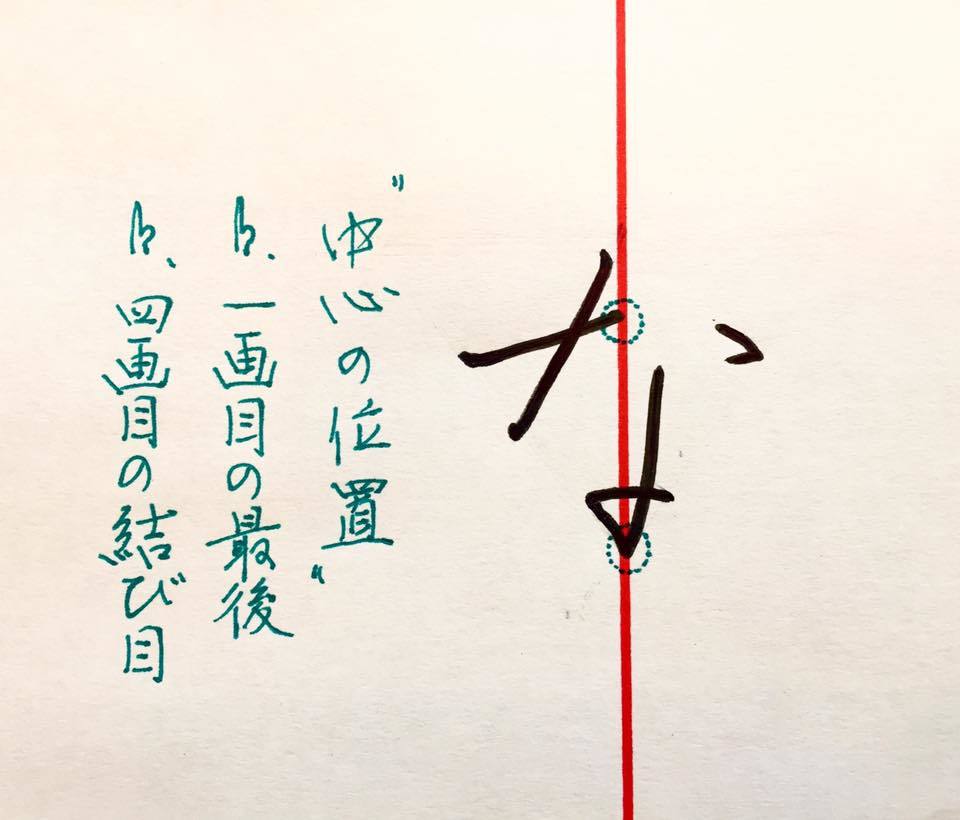 な
〝中心の位置〟
一画目の最後
四画目の結び目